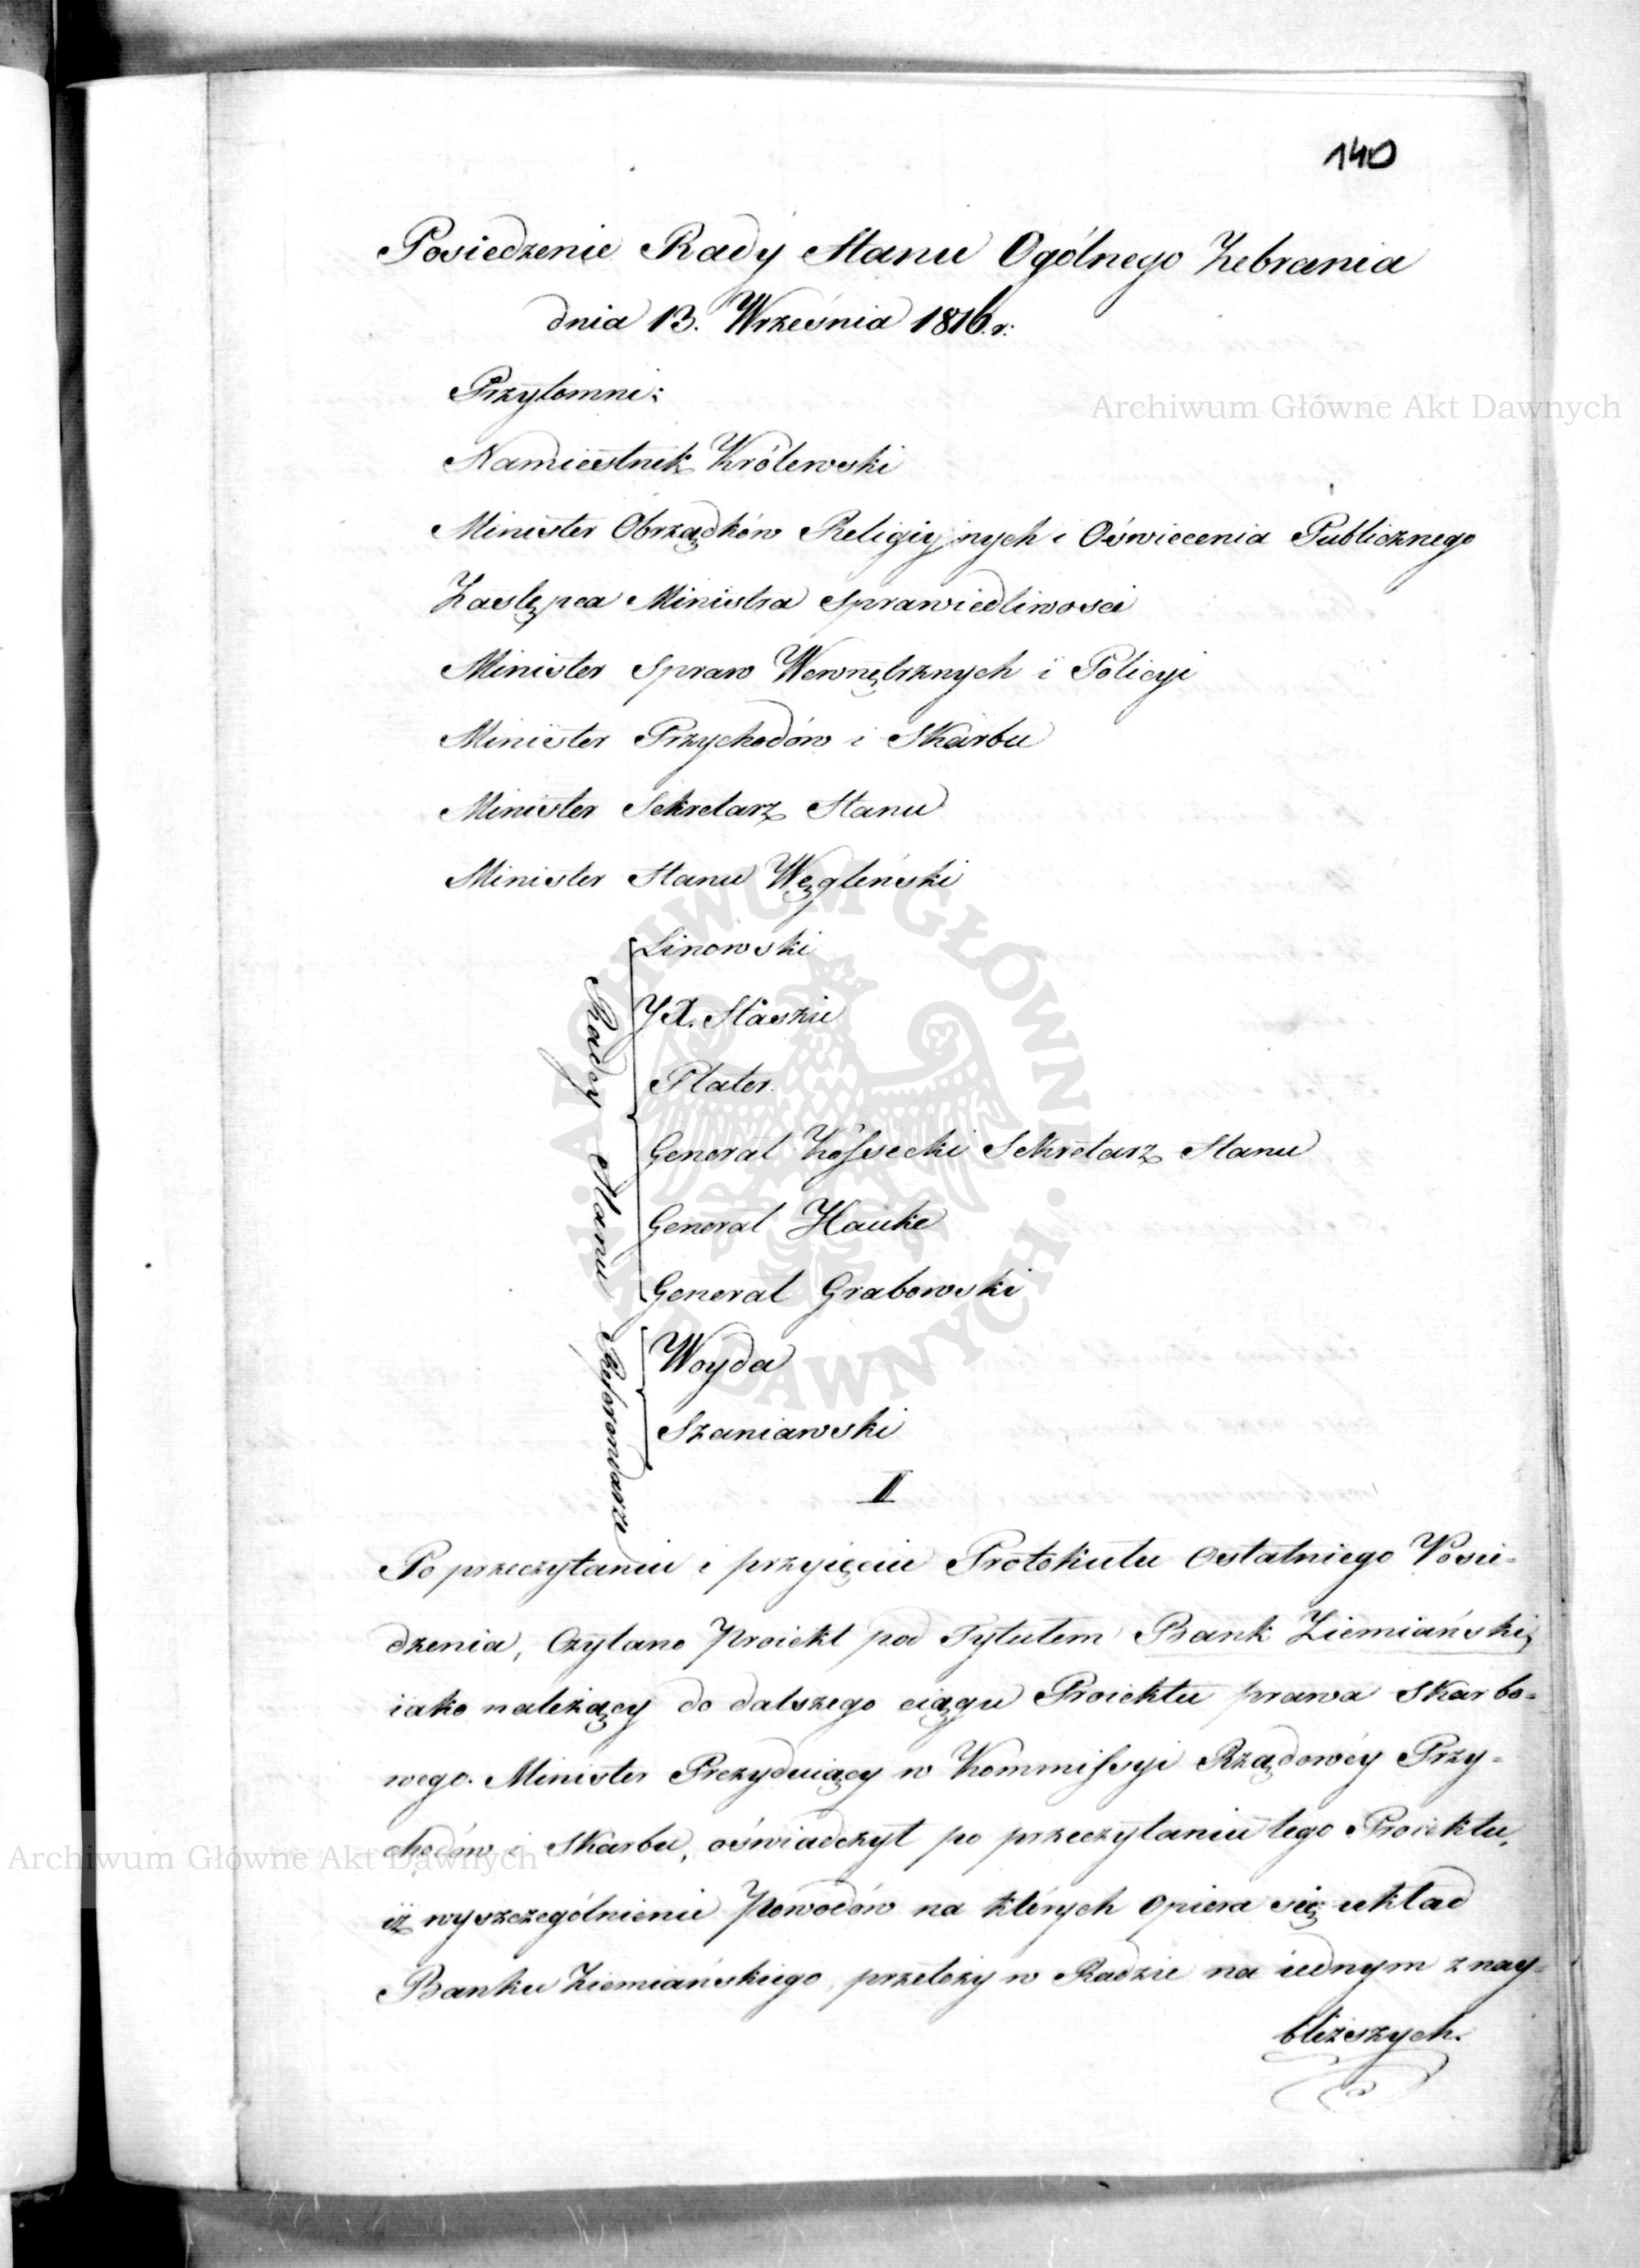 140
Posiedzenie Rady Stanu Ogólnego Zebrania
dnia 13. Września 1816. r:
Przytomni:
Namiestnik Królewski
Minister Obrządków Religiynych i Oświecenia Publicznego
Zastępca Ministra Sprawiedliwosci
Minister Spraw Wewnętrznych i Policyi
Minister Przychodów i Skarbu
Minister Sekretarz Stanu
Minister Stanu Węgleński
Radcy Stanu
Linowski
JX. Staszic
Plater.
Generał Kossecki Sekretarz Stanu
Generał Hauke
Generał Grabowski
Referendarze
Woyda
Szaniawski
II
Po przeczytaniu i przyięciu Protokułu Ostatniego Posie-
dzenia, Czytano Proiekt pod Tytułem Bank Ziemiański,
iako należący do dalszego ciągu Proiektu prawa Skarbo-
wego. Minister Prezyduiący w Kommissyi Rządowéy Przy-
chodów i Skarbu, oświadczył po przeczytaniu tego Proiektu,
iż wyszczególnienie Powodów na których Opiera się układ
Banku Ziemiańskiego, przełoży w Radzie na iednym z nay-
bliższych.
Archiwum Główne Akt Dawnych
Archiwum Główne Akt Dawnych
ARCHIWUM GŁÓWNE AKT DAWNYCH